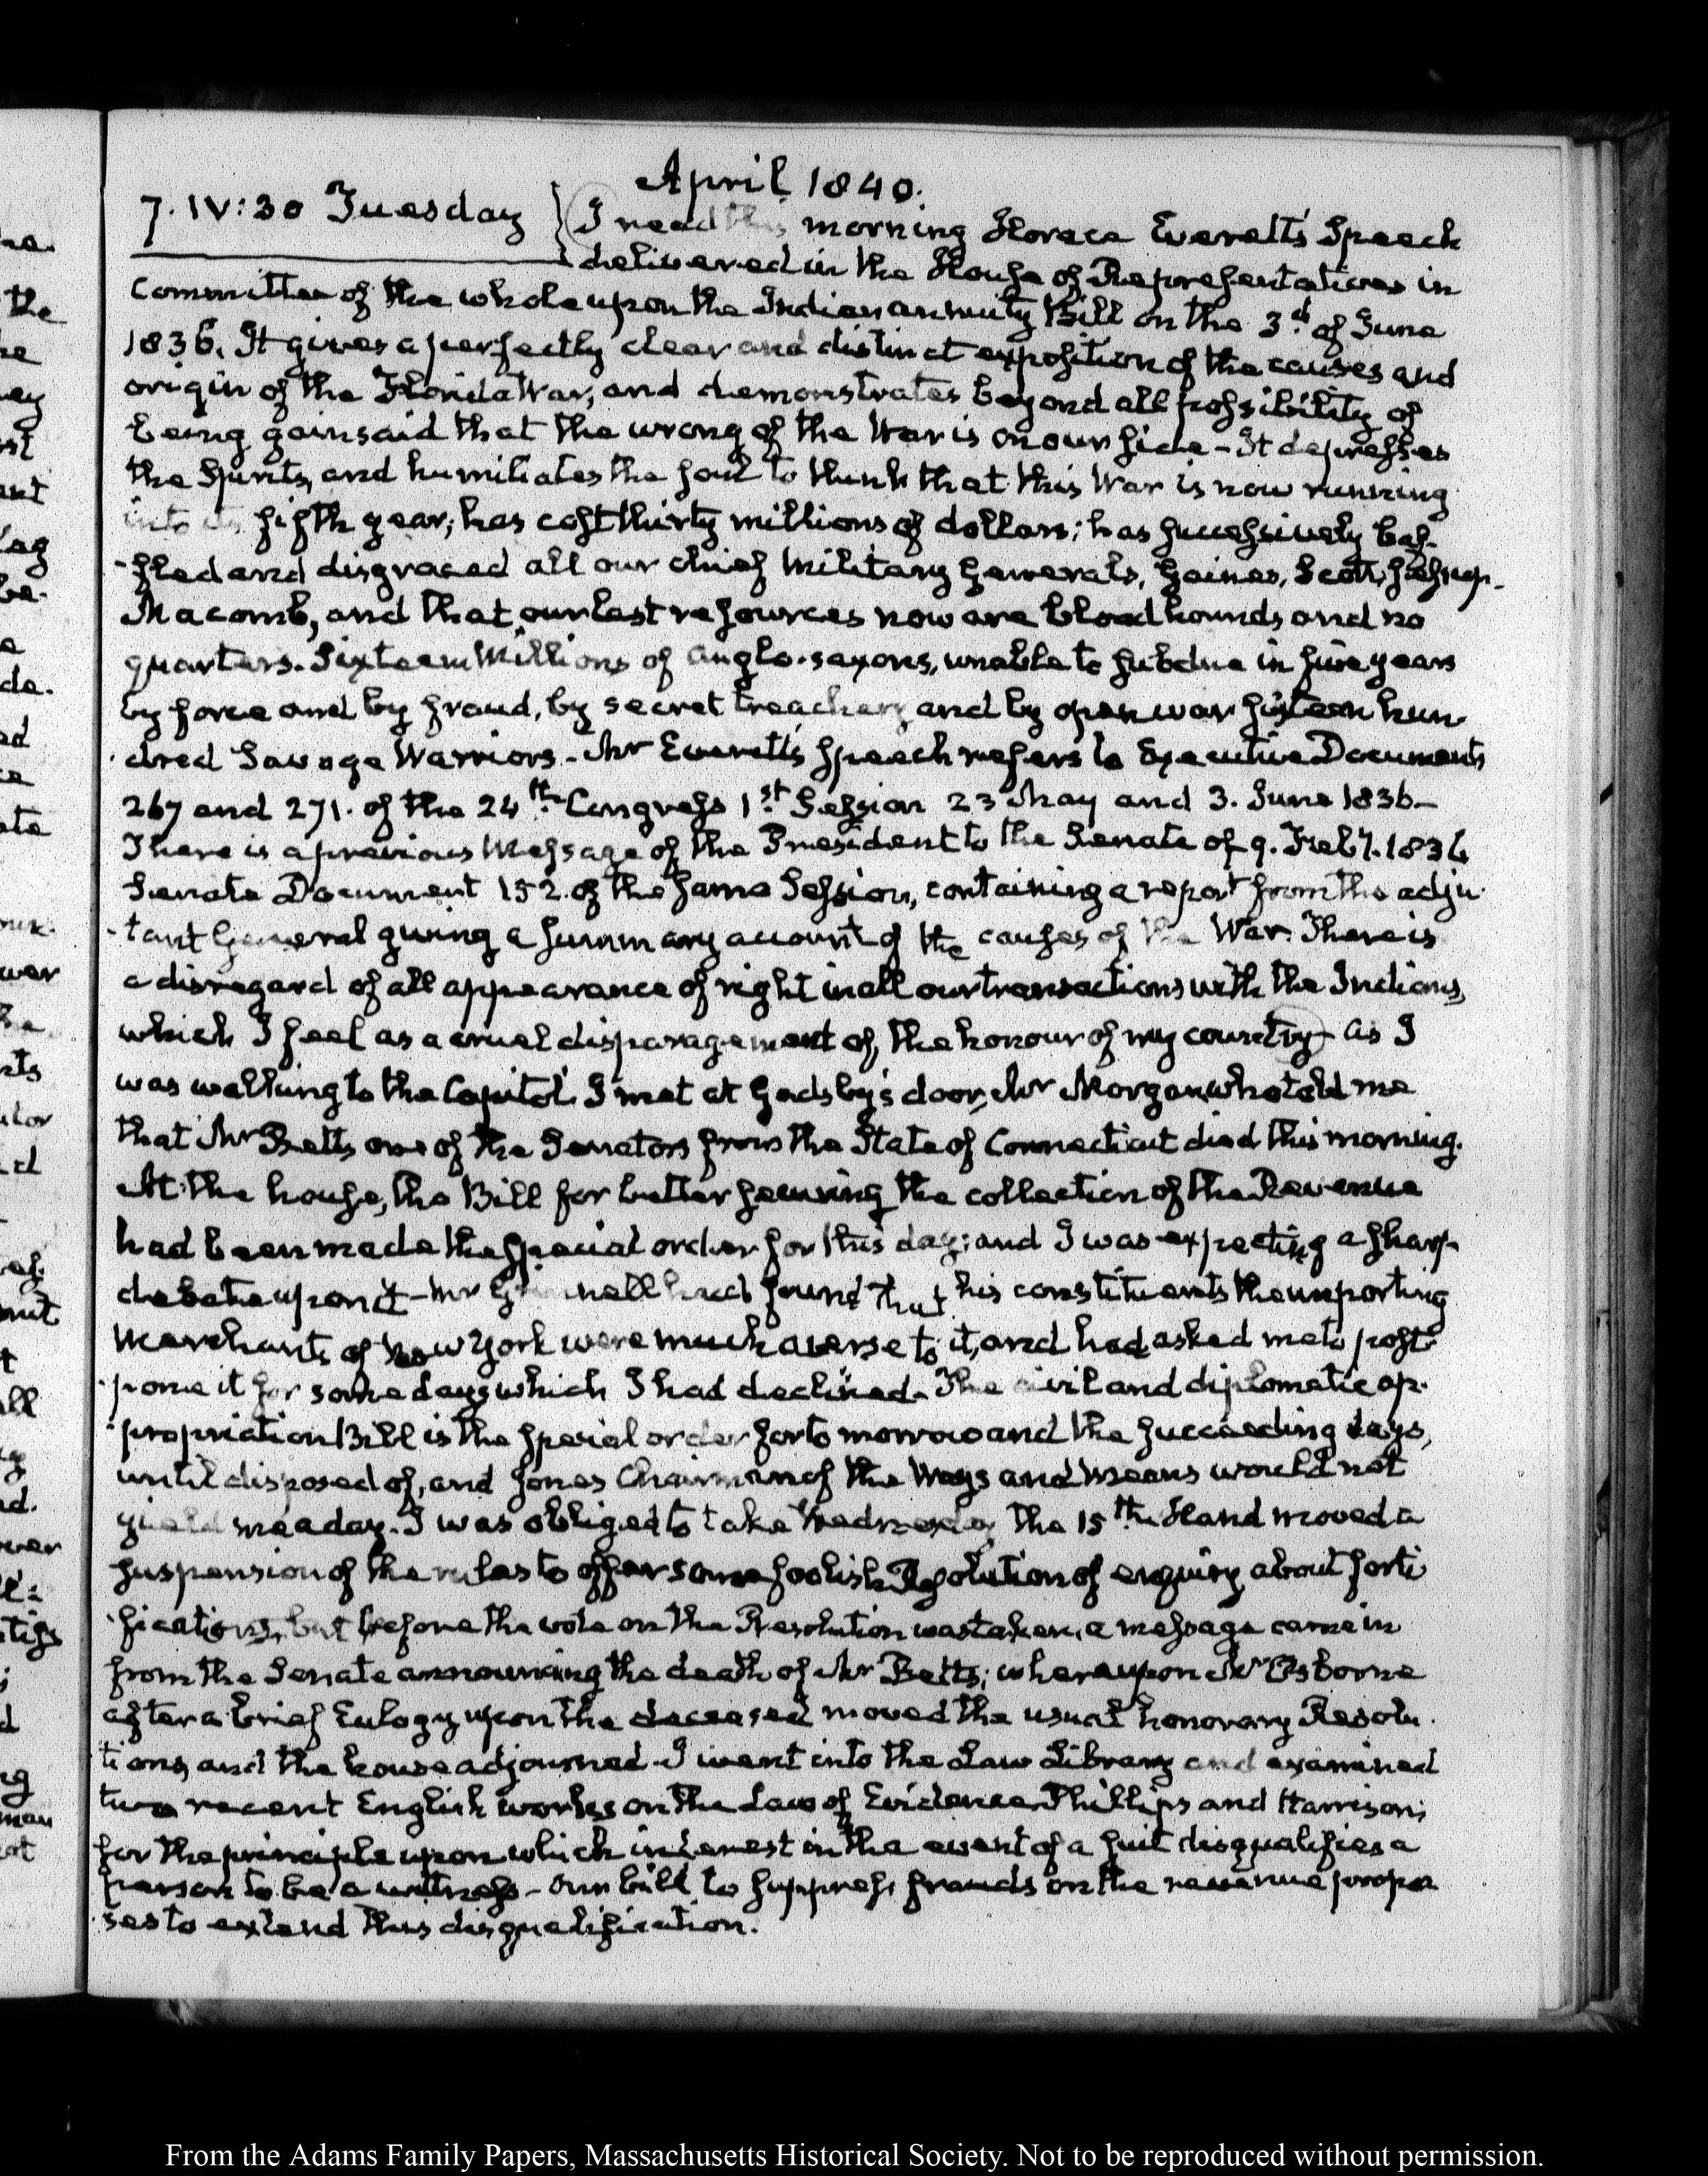 April 1840.
7. IV:30 Tuesday } I read this morning Horace Everett's Speech
delivered in the House of Representatives in
Committee of the whole upon the Indian annuity Bill on the 3.d of June
1836. It gives a perfectly clear and distinct exposition of the causes and
origin of the Florida War, and demonstrates beyond all possibility of
being gainsaid that the wrong of the War is on our side - It depresses
the Spirits, and humiliates the soul to think that this War is now running
into its fifth year, has cost thirty millions of dollars; has successively baf-
-fled and disgraced all our chief Military Generals, Gaines, Scott, Jesup.
Macomb, and that our last resources now are bloodhounds and no
quarters. Sixteen Millions of Anglo-saxons, unable to subdue in five years
by force and by fraud, by secret treachery and by open war sixteen hun-
-dred Savage Warriors - Mr Everett's speech refers to Executive Documents
267 and 271. of the 24.th Congress 1.st Session 23 May and 3. June 1836 -
There is a previous Message of the President to the Senate of 9. Feby. 1836
Senate Document 152. of the same Session, containing a report from the adju-
-tant General giving a summary account of the causes of the War. There is
a disregard of all appearance of right in all our transactions with the Indians,
which I feel as a cruel disparagement of, the honour of my country - As I
was walking to the Capitol, I met at Gadsby's door, Mr Morgan who told me
that Mr Betts one of the Senators from the State of Connecticut died this morning.
At the house, the Bill for better securing the collection of the Revenue
had been made the special order for this day; and I was expecting a sharp
debate upon it - Mr Grinnell had found that his constituents the importing
Merchants of New York were much averse to it, and had asked me to post-
-pone it for some days which I had declined. The civil and diplomatic ap-
-propriation Bill is the special order for to morrow and the succeeding days,
until disposed of, and Jones Chairman of the Ways and Means would not
yield me a day. I was obliged to take Wednesday the 15th Hand moved a
suspension of the rules to offer some foolish Resolution of enquiry about forti
-fications, but before the vote on the Resolution was taken, a message came in
from the Senate announcing the death of Mr Betts; whereupon Mr Osborne
after a brief Eulogy upon the deceased moved the usual honorary Resolu-
tions, and the house adjourned - I went into the Law Library and examined
two recent English works on the Law of Evidence Phillips and Harrison;
for the principle upon which interest in the event of a suit disqualifies a
person to be a witness - Our bill to suppress frauds on the revenue propo
-ses to extend this disqualification.
From the Adams Family Papers, Massachusetts Historical Society. Not to be reproduced without permission.